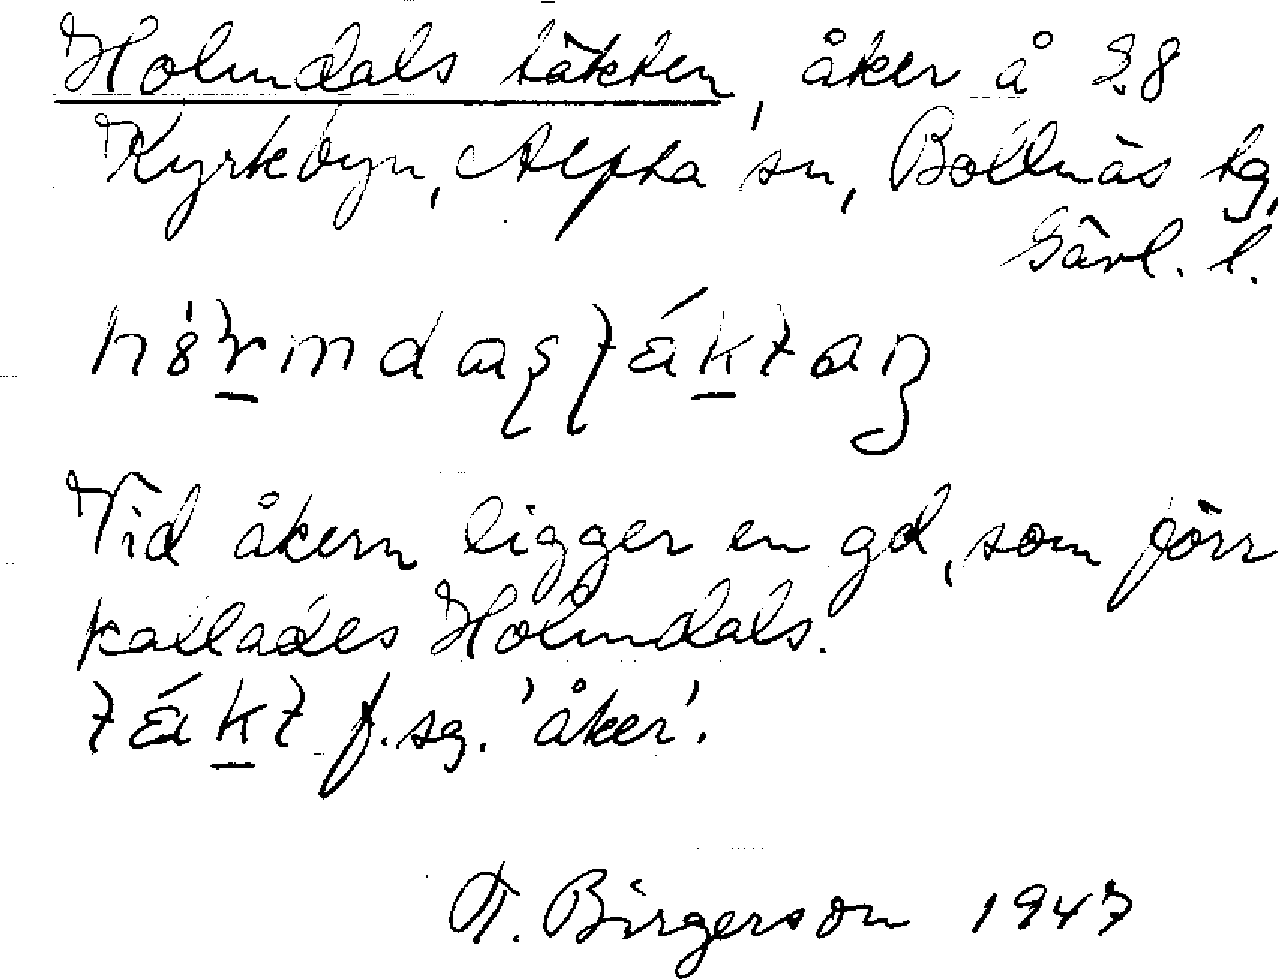 Holmdals täkten, åker å 28
Kyrkbyn, Alfta sn, Bollnäs tg,
Gävl. l.
Vid åkern ligger en gd, som förr
kallades Holmdals.
f. sg. 'åker'.
Birgerson 1947